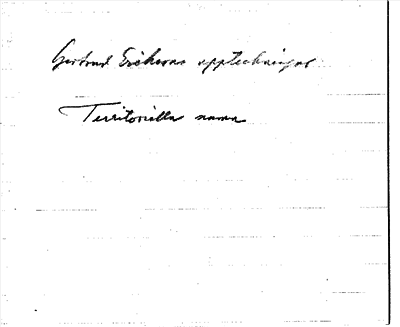 Gertrud Erikeras uppteckningar
Territoriella namn